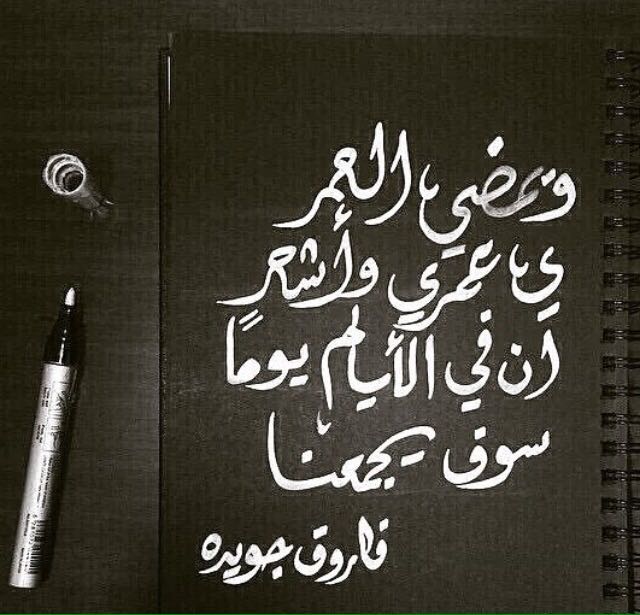 ويمضي العمر
يا عمري وأشعر
أن في الأيام يومًا
سوف يجمعنا
فاروق جويده